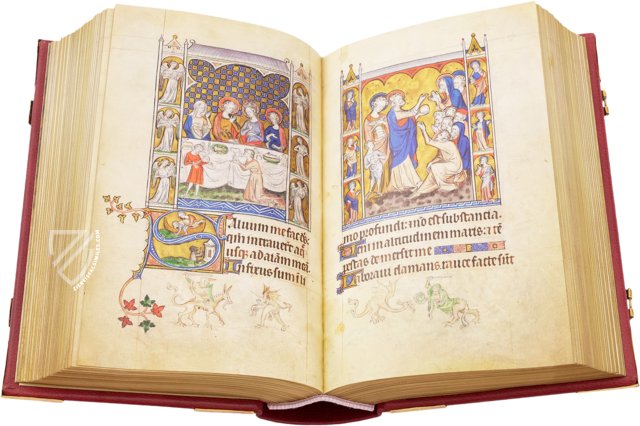 Aluum me fac
qm intrauer aq
usq; ad aiam mea
Infixus sum ili
mo profundi: non est substancia.
Ueni in altitudinem maris: a tē
pestas demersit me
Laboraui clamans rauce facte sūt